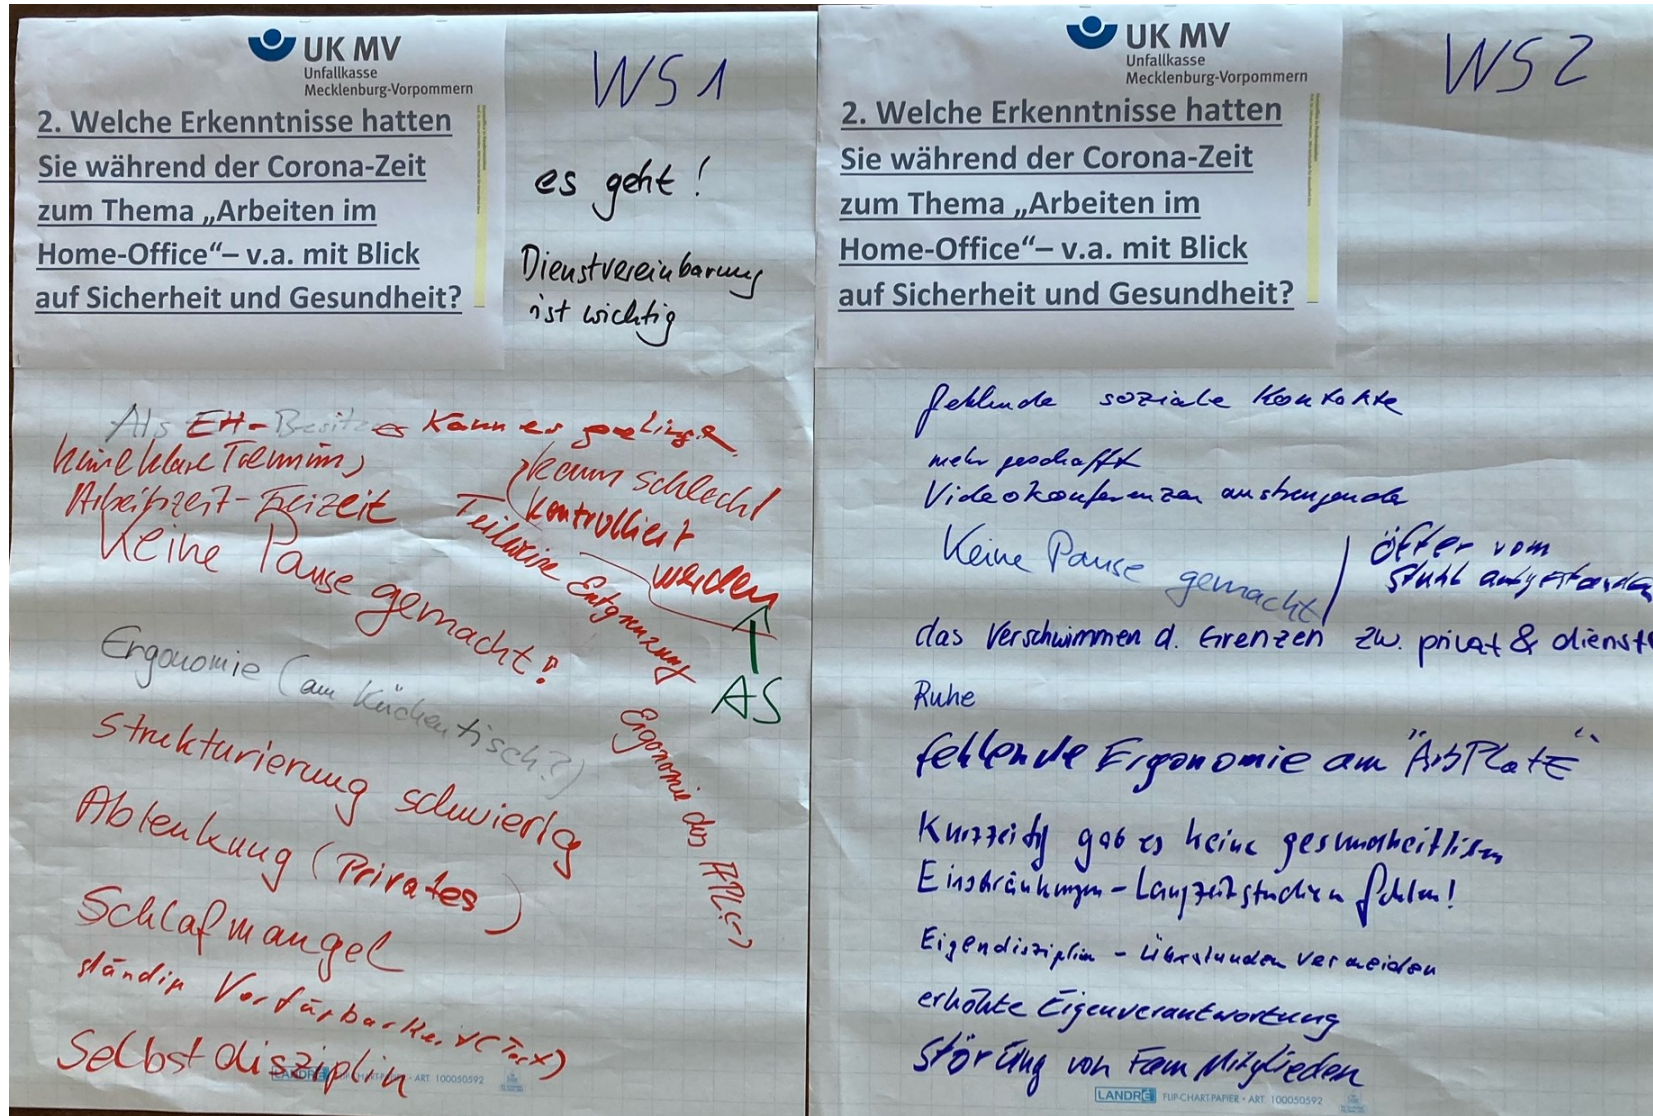 UK MV
Unfallkasse
Mecklenburg-Vorpommern
WS1
2. Welche Erkenntnisse hatten
Sie während der Corona-Zeit
zum Thema „Arbeiten im
Home-Office“– v.a. mit Blick
auf Sicherheit und Gesundheit?
es geht!
Dienstvereinbarung
ist wichtig
Als EH-Besitzer kann es gelingen
keine klare Trennung
Arbeitszeit-Freizeit
kann schlecht
kontrolliert
werden
AS
Teilweise Entgrenzung
Keine Pause gemacht!
Ergonomie (am Küchentisch?)
Ergonomie des APL (-)
Strukturierung schwierig
Ablenkung (Privates)
Schlafmangel
ständig Verfügbarkeit
Selbstdisziplin
LANDRÉ FLIP-CHART-PAPIER · ART. 100050592
UK MV
Unfallkasse
Mecklenburg-Vorpommern
WS2
2. Welche Erkenntnisse hatten
Sie während der Corona-Zeit
zum Thema „Arbeiten im
Home-Office“– v.a. mit Blick
auf Sicherheit und Gesundheit?
fehlende soziale Kontakte
mehr geschafft
Videokonferenzen anstrengender
Keine Pause gemacht
öfter vom
Stuhl aufgestanden
das Verschwimmen d. Grenzen zw. privat & dienstl
Ruhe
fehlende Ergonomie am "ArbPlatz"
Kurzzeitig gab es keine gesundheitlichen
Einschränkungen - Langzeitstudien fehlen!
Eigendisziplin - Überstunden vermeiden
erhöhte Eigenverantwortung
Störung von Fam Mitglieden
LANDRÉ FLIP-CHART-PAPIER · ART. 100050592